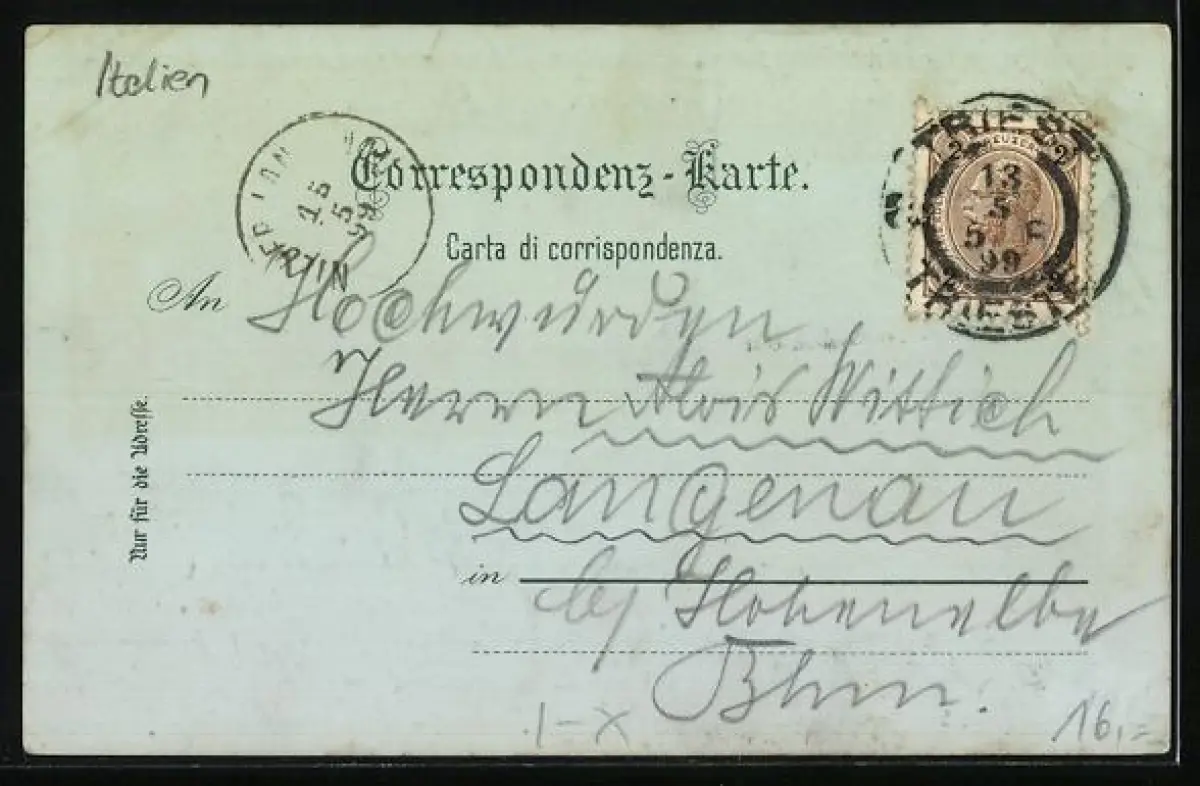 Italien
Correspondenz-Karte.
Carta di corrispondenza.
TRIEST
13
5
5 C
99
TRIESTE
2 KREUZER 2
15
5
99
An Hochwürden
Herrn Alois Wittich
Langenau
in
bj Hohenelbe
Bhm.
Nur für die Adresse.
1-X
16,-